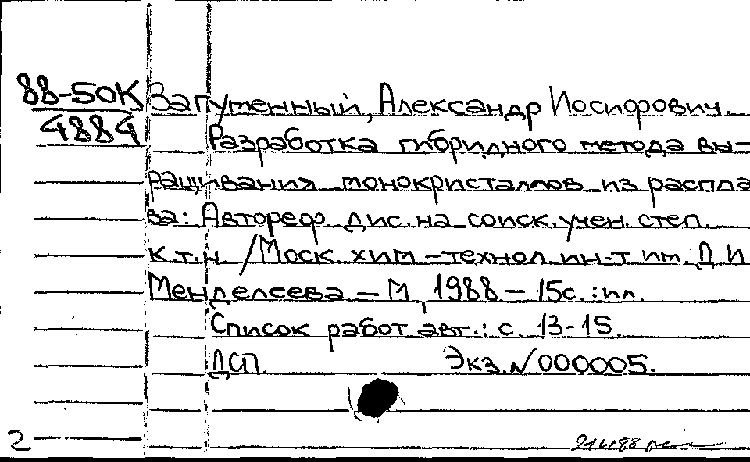 88-50К Запутенный, Александр Иосифович.
4884 Разработка гибридного метода вы-
ращивания монокристаллов из распла
ва: Автореф. дис. на соиск. учен. степ.
к.т.н. /Моск. хим-технол. ин-т им. Д И
Менделеева - М, 1988 - 15с.: ил.
Список работ авт.: с. 13-15.
ДСП. Экз. № 000005.
2